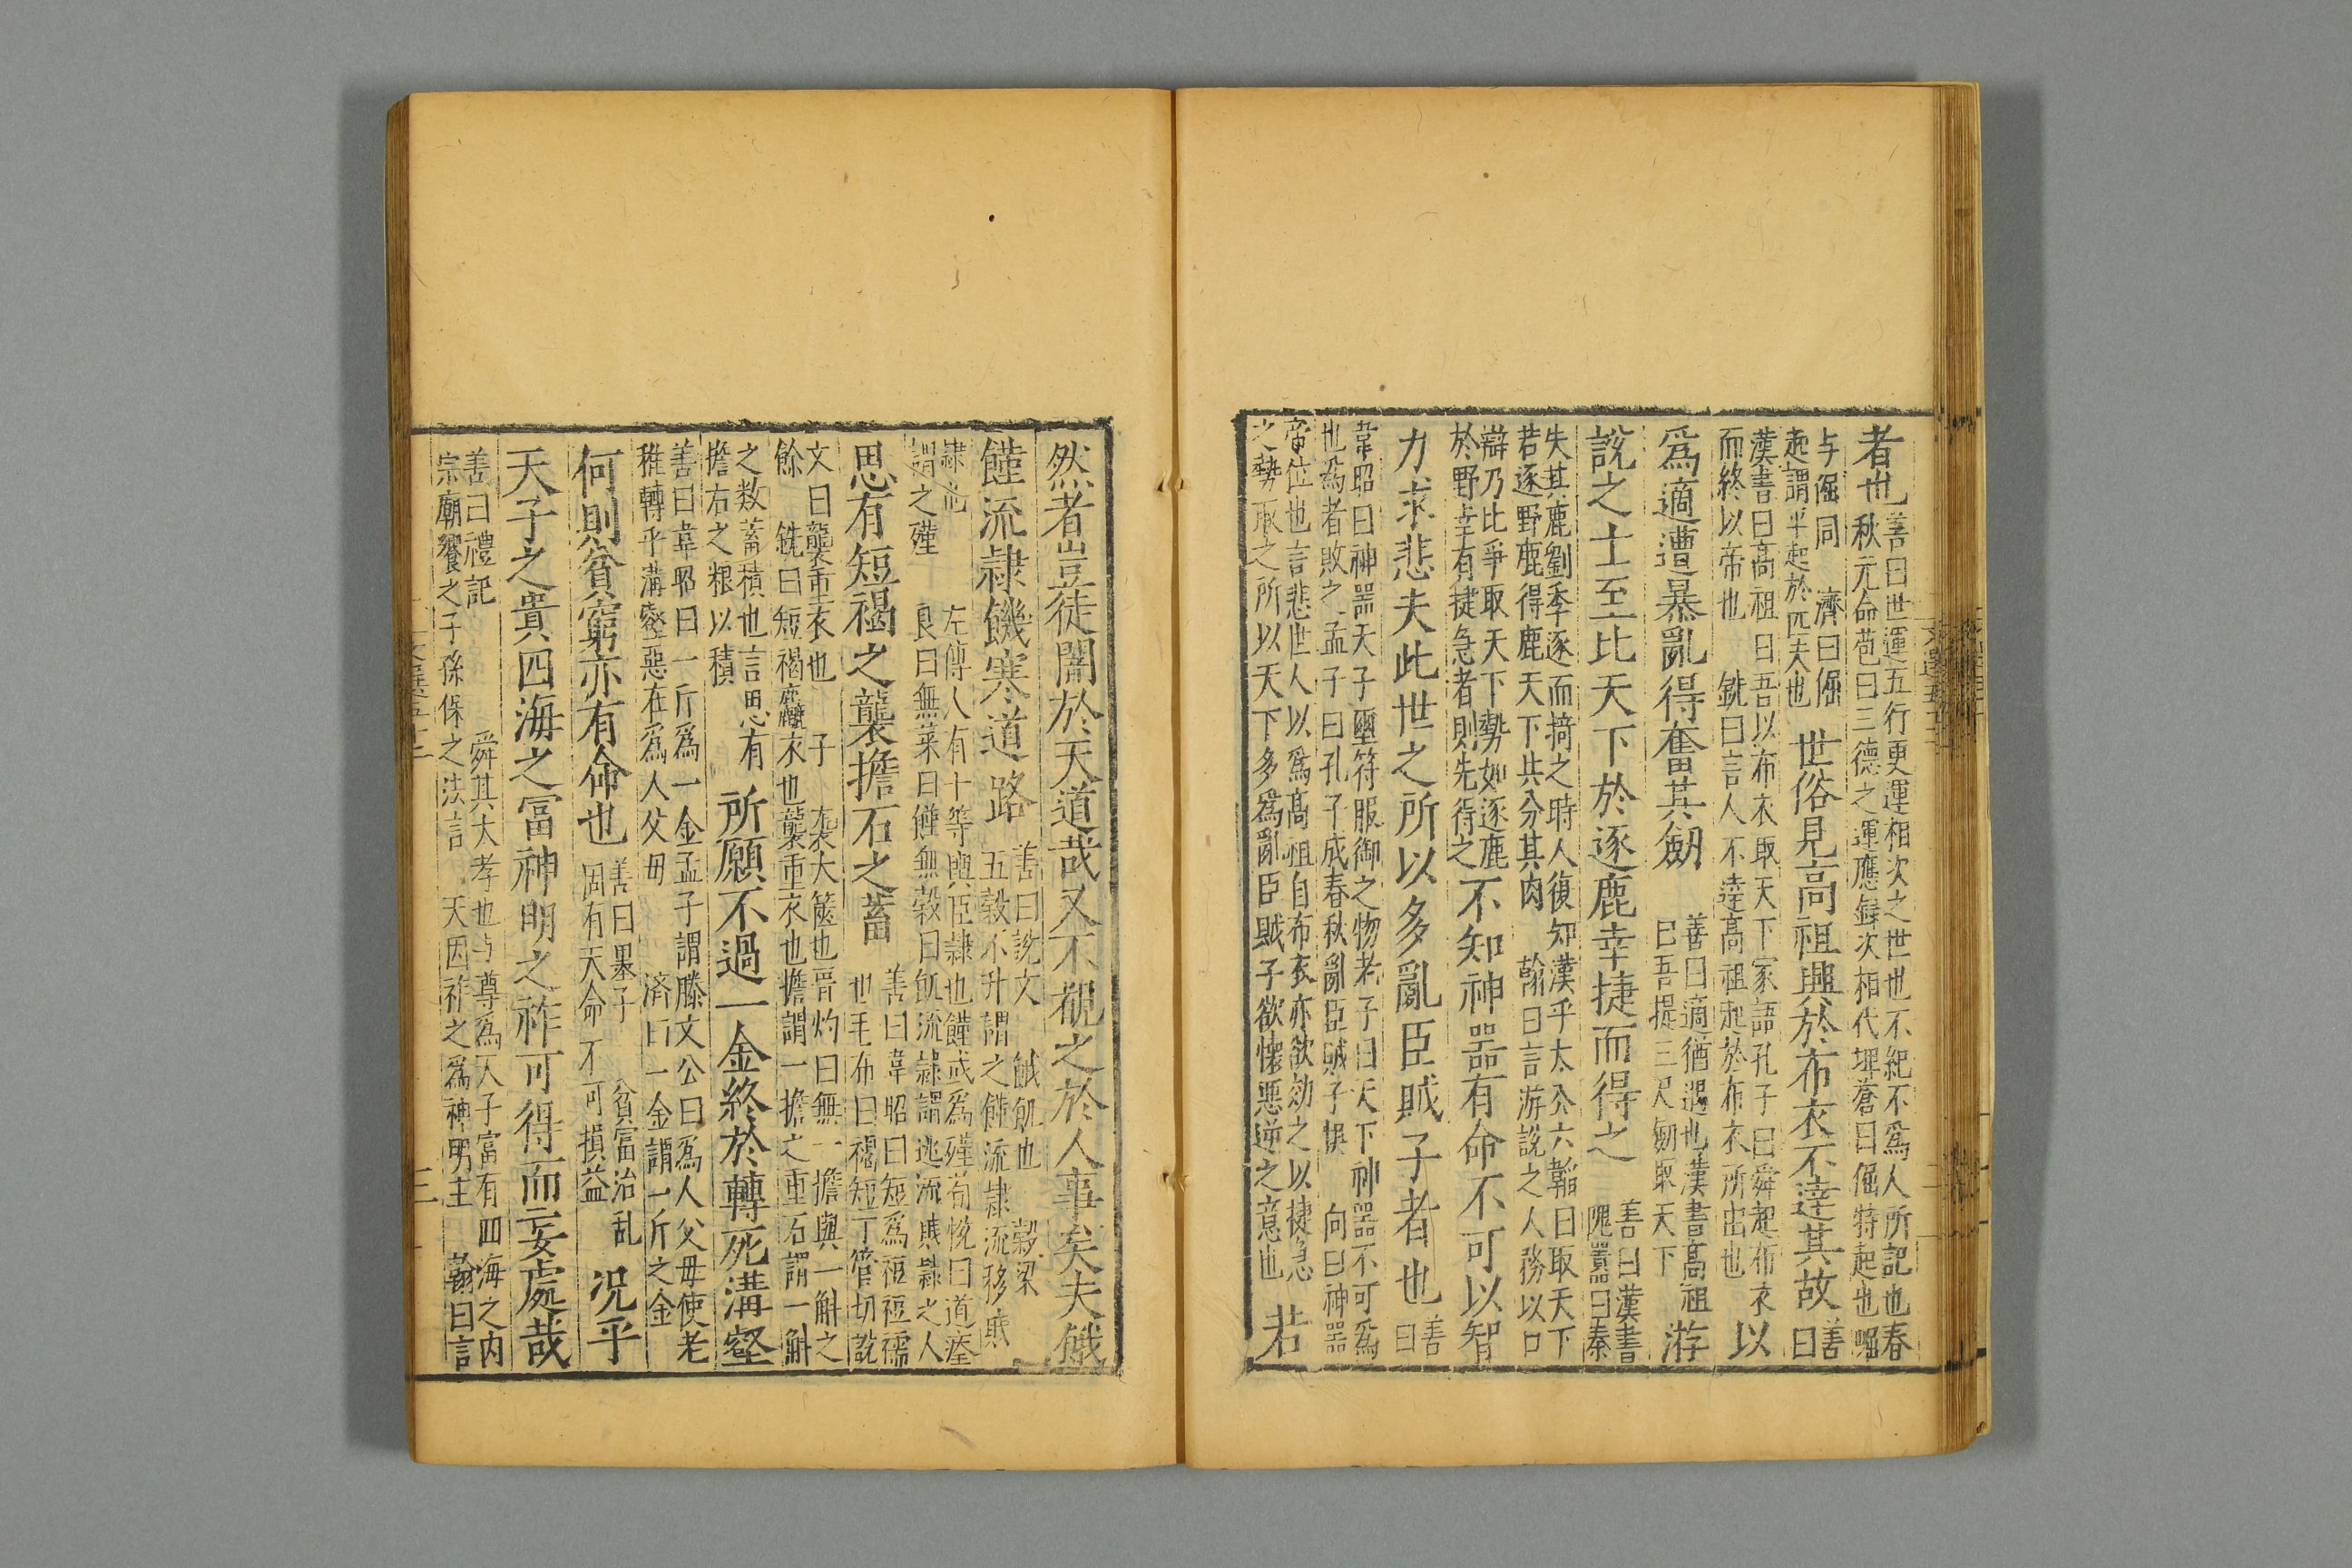 者也善曰世運五行更運相次之世也不紀不爲人所記也春
秋元命苞曰三德之運應録次相代埤蒼曰倔特起也崛
与倔同 濟曰倔
起謂平起於匹夫也
世俗見高祖興於布衣不達其故善
曰
漢書曰高祖曰吾以布衣取天下家語孔子曰舜起布衣
而終以帝也 銑曰言人不達高祖起於布衣所出也
以
爲適遭暴亂得奮其劒
善曰適猶遇也漢書高祖
曰吾提三尺劒取天下
游
說之士至比天下於逐鹿幸捷而得之
善曰漢書
隗嚻曰秦
失其鹿劉季逐而掎之時人復知漢乎太公六韜曰取天下
若逐野鹿得鹿天下共分其肉 翰曰言游說之人務以口
辯乃比爭取天下勢如逐鹿
於野幸有捷急者則先得之
不知神器有命不可以智
力求悲夫此世之所以多亂臣賊子者也善
曰
韋昭曰神器天子璽符服御之物老子曰天下神器不可爲
也爲者敗之孟子曰孔子成春秋亂臣賊子懼 向曰神器
帝位也言悲世人以爲高祖自布衣亦欲効之以捷急
之勢取之所以天下多爲亂臣賊子欲懷悪逆之意也
若
然者豈徒闇於天道哉又不覩之於人事矣夫餓
饉流隷饑寒道路
善曰說文 餓飢也 穀梁
五穀不升謂之饉流隷流移賤
隷也 左傳人有十等輿臣隷也饉或爲殣荀悅曰道瘞
謂之殣 良曰無菜曰饉無穀曰飢流隷謂逃流賤隷之人
思有短褐之襲擔石之蓄
善曰韋昭曰短爲裋裋襦
也毛布曰褐短丁管切說
文曰襲重衣也 子 袠大篋也晋灼曰無一擔與一斛之
餘 銑曰短褐麤衣也襲重衣也擔謂一擔之重石謂一斛
之数蓄積也言思有
擔石之粮以積
所願不過一金終於轉死溝壑
善曰韋昭曰一斤爲一金孟子謂滕文公曰爲人父毋使老
稚轉乎溝壑惡在爲人父毋 済曰一金謂一斤之金
何則貧窮亦有命也
善曰墨子 貧富治乱
固有天命不可損益
况乎
天子之貴四海之富神明之祚可得而妄處哉
善曰禮記 舜其大孝也与尊爲人子富有四海之内
宗廟饗之子孫保之法言 天因祚之爲神明主 翰曰言
三